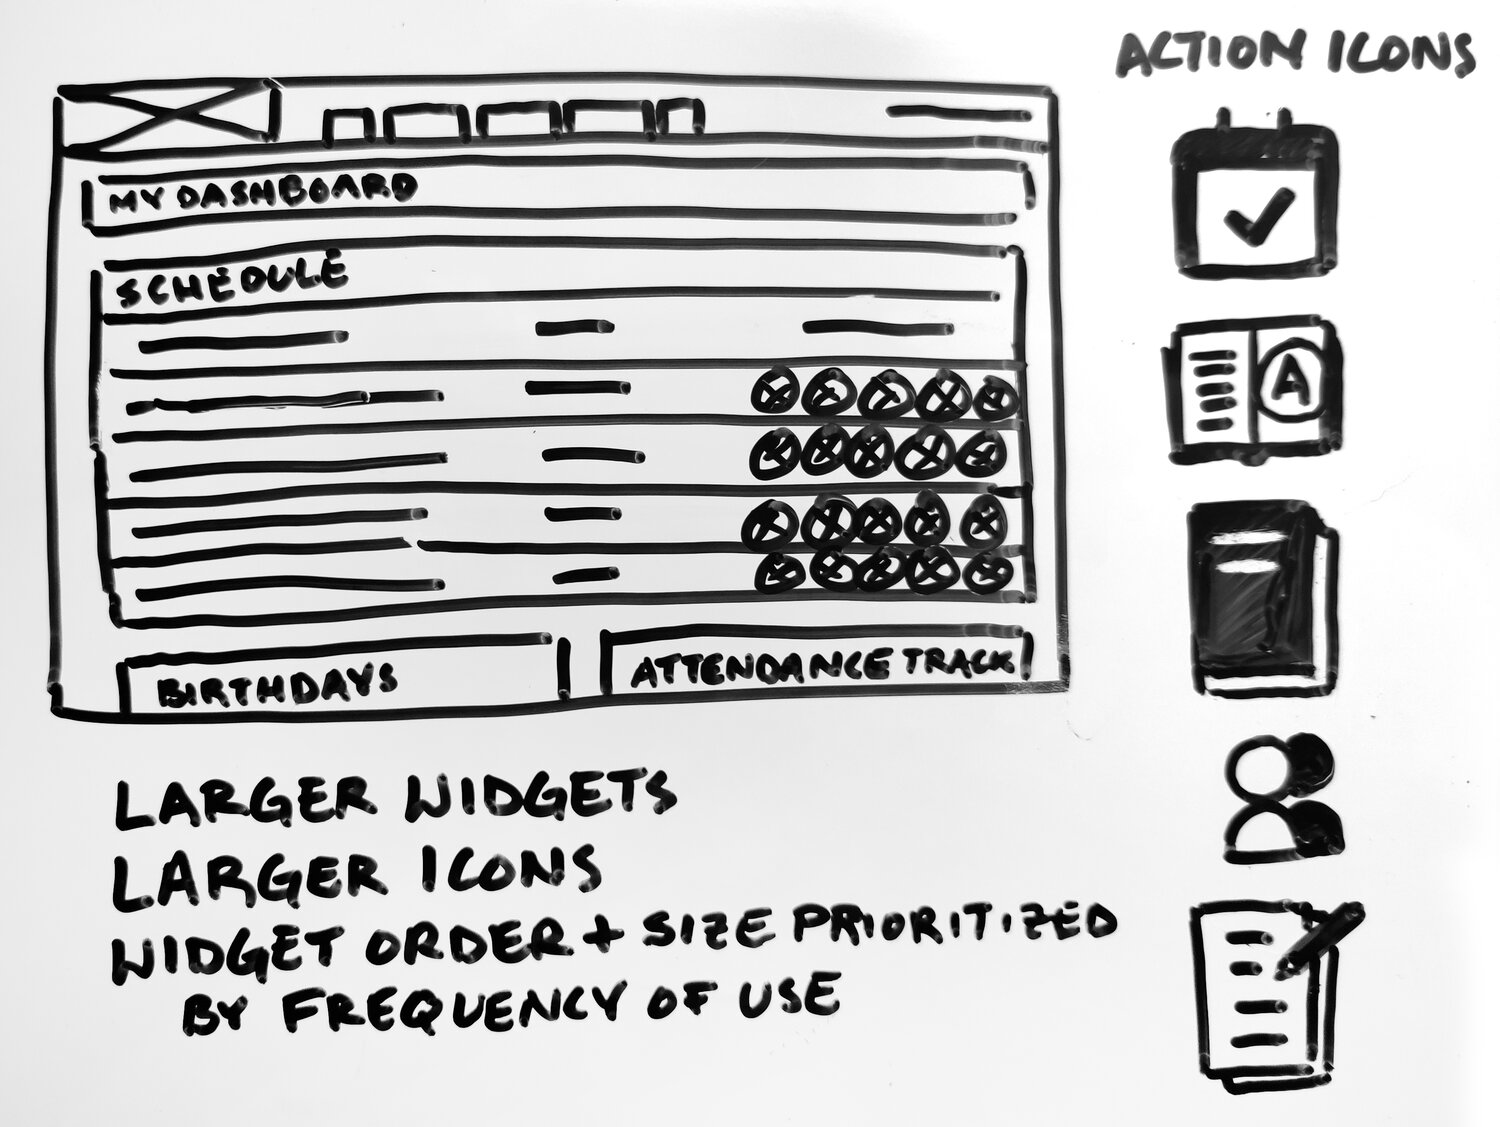 ACTION ICONS
MY DASHBOARD
SCHEDULE
A
BIRTHDAYS
ATTENDANCE TRACK
LARGER WIDGETS
LARGER ICONS
WIDGET ORDER + SIZE PRIORITIZED
BY FREQUENCY OF USE